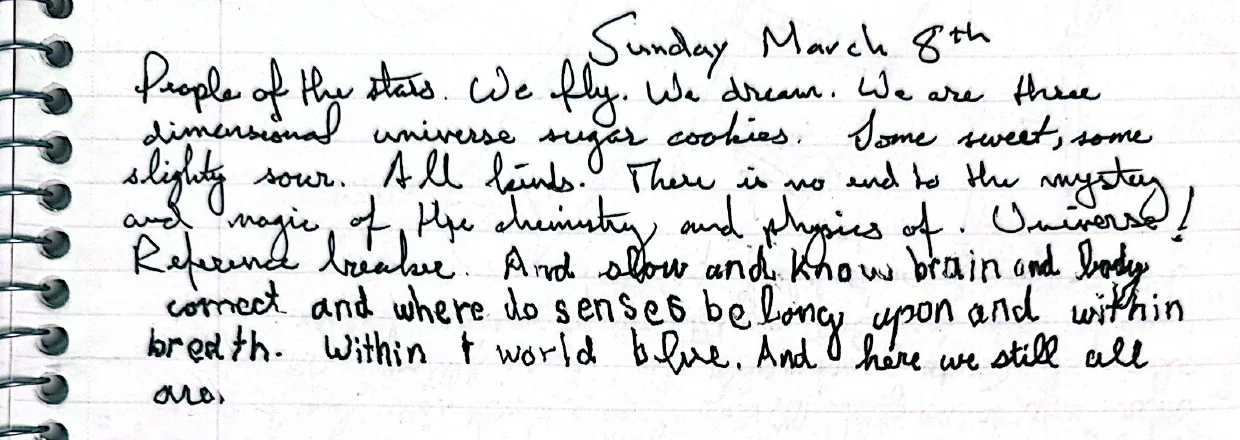 Sunday March 8th
People of the stars. We fly. We dream. We are three
dimensional universe sugar cookies. Some sweet, some
slighty sour. All kinds. There is no end to the mystery
and magic of the chemistry and physics of. Universe!
Reference breaker. And slow and know brain and body
correct and where do senses belong upon and within
breath. Within t world blue. And here we still all
are.